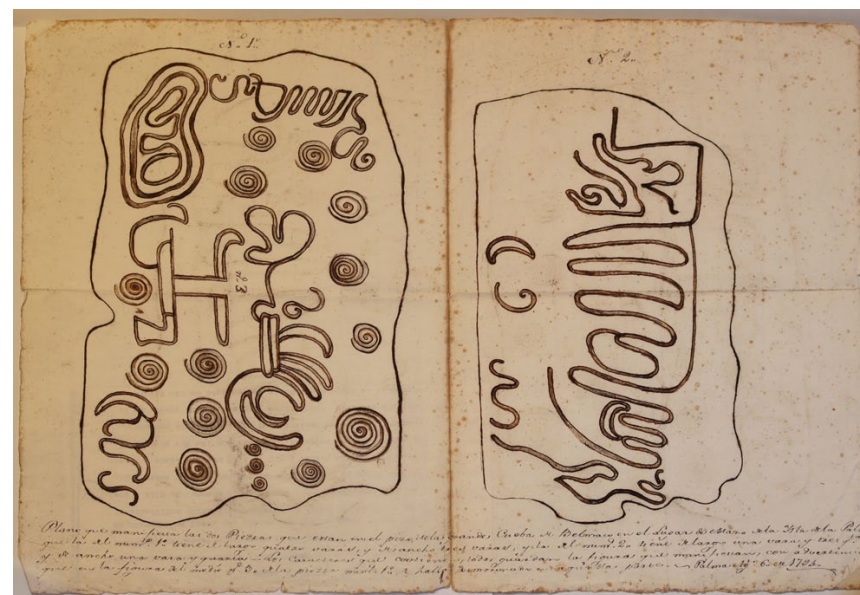 N.º 1.º
N.º 2.
n.º 3
Plano que manifiesta las dos Piezas que estan en el piso de la grande Cueba de Belmaco en el Lugar de Mazo de la Isla de la Palma
que la del num.º 1.º tiene de largo quatro varas, y de ancho tres varas, y la del num.º 2.º tiene de largo una vara y tres
y de ancho una vara y quarta. Los Caracteres que contiene todos guardan la figura que manifiestan, con advertencia
que en la figura del n.º 3. de la pieza num.º 1.º